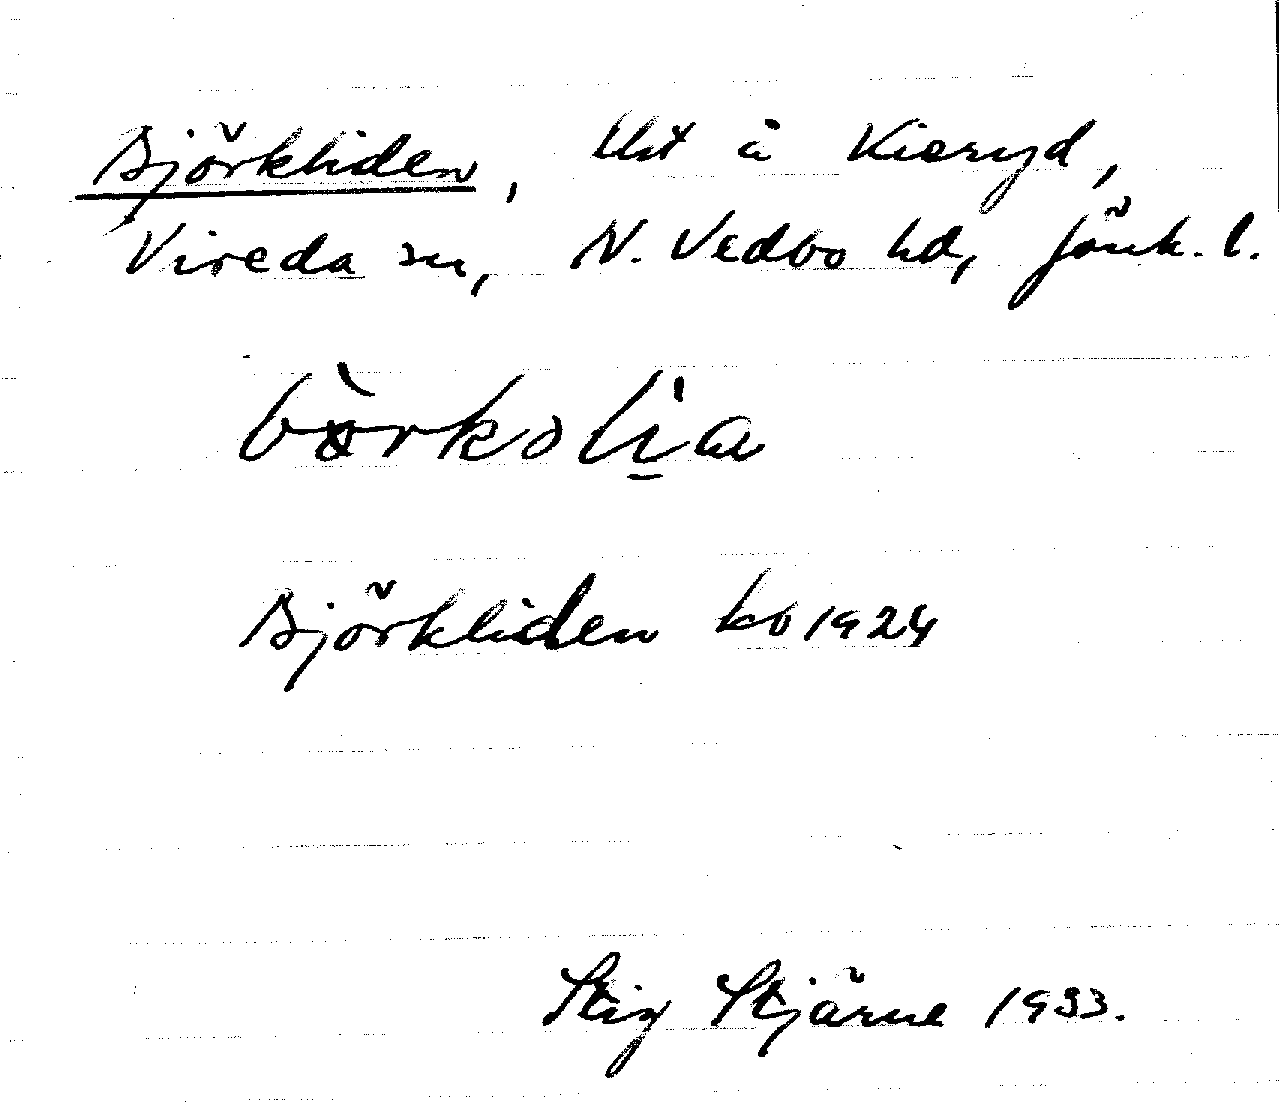 Björkliden, lht å Kieryd,
Vireda sn, N. Vedbo hd, Jönk. l.
bòrkoli̠a
Björkliden kb 1924
Stig Stjärne 1933.